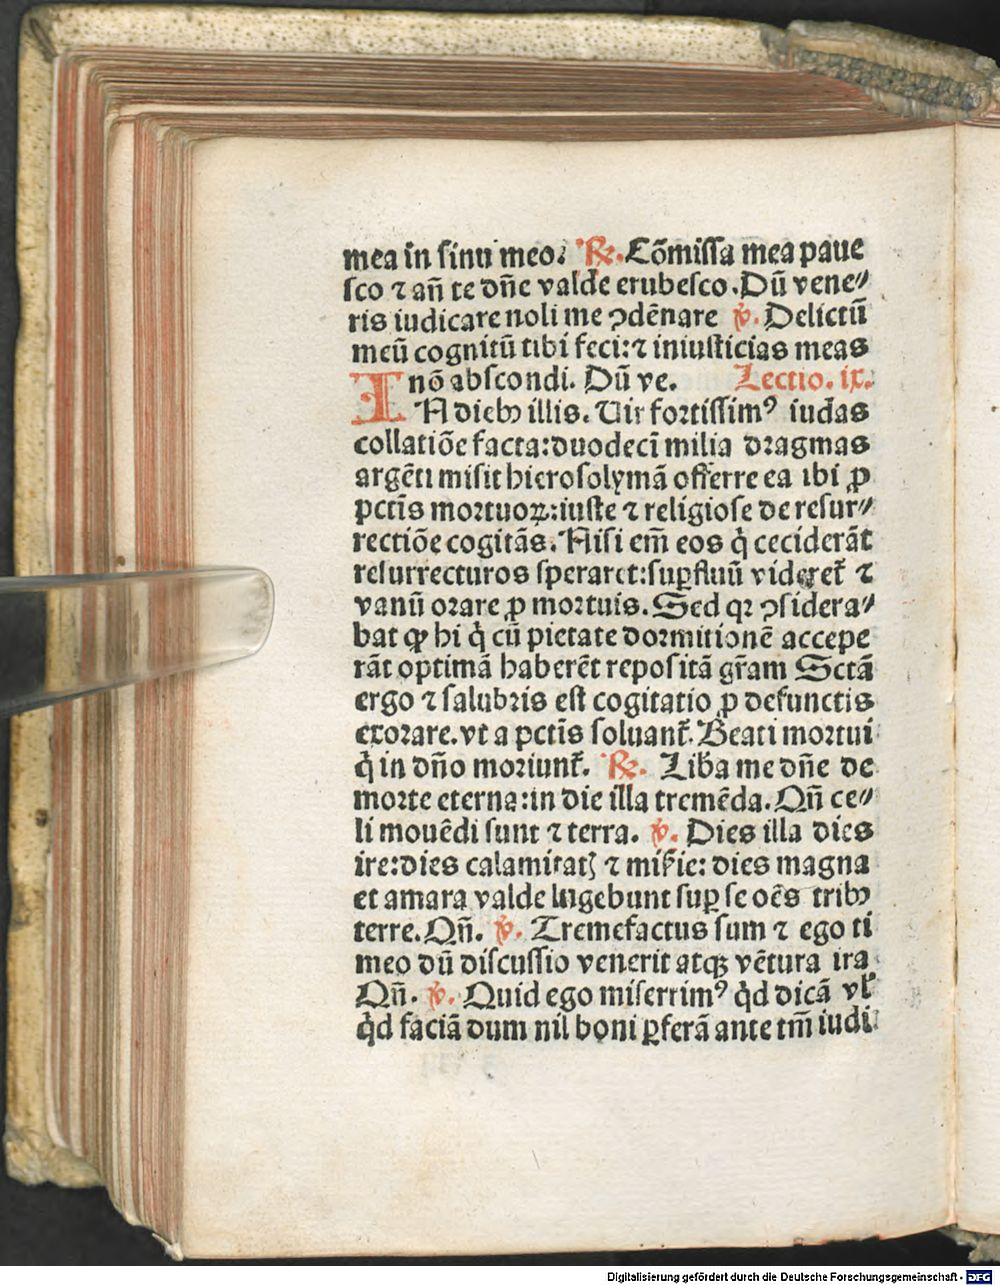 mea in sinu meo. ℟. Cōmissa mea paue
sco ⁊ añ te dñe valde erubesco. Dū vene⸗
ris iudicare noli me ↄdēnare ℣. Delictū
meū cognitū tibi feci: ⁊ iniusticias meas
nō abscondi. Dū ve. Lectio. ix.
IN dieb⁹ illis. Uir fortissim⁹ iudas
collatiōe facta: duodecī milia dragmas
argēti misit hierosolymā offerre ea ibi ꝓ
pctīs mortuoꝝ: iuste ⁊ religiose de resur⸗
rectiōe cogitās. Nisi em̄ eos q̇ ceciderāt
resurrecturos speraret: suꝑfluū videret᷑ ⁊
vanū orare ꝓ mortuis. Sed qꝛ ↄsidera⸗
bat ꝙ hi q̇ cū pietate dormitionē accepe
rāt optimā haberēt repositā gr̄am Sctā
ergo ⁊ salubris est cogitatio ꝓ defunctis
exorare. vt a pctīs soluant᷑. Beati mortui
q̇ in dño moriunt᷑. ℟. Lib̄a me dñe de
morte eterna: in die illa tremēda. Qñ ce⸗
li mouēdi sunt ⁊ terra. ℣. Dies illa dies
ire: dies calamitatꝭ ⁊ mis̄ie: dies magna
et amara valde lugebunt suꝑ se oēs trib⁹
terre. Qñ. ℣. Tremefactus sum ⁊ ego ti
meo dū discussio venerit atqꝫ vētura ira
Qñ. ℣. Quid ego miserrim⁹ qd̄ dicā vl̄
qd̄ faciā dum nil boni ꝑferā ante tm̄ iudi
Digitalisierung gefördert durch die Deutsche Forschungsgemeinschaft - DFG